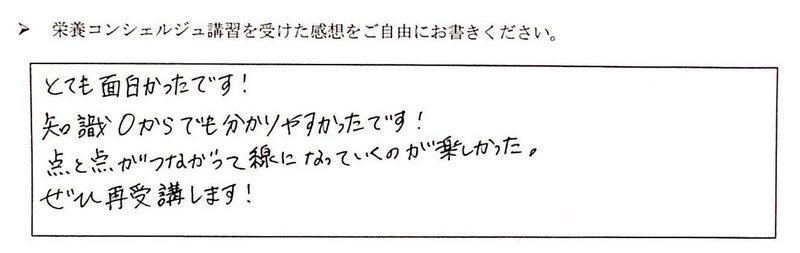 ➢ 栄養コンシェルジュ講習を受けた感想をご自由にお書きください。
とても面白かったです!
知識0からでも分かりやすかったです!
点と点がつながって線になっていくのが楽しかった。
ぜひ再受講します!